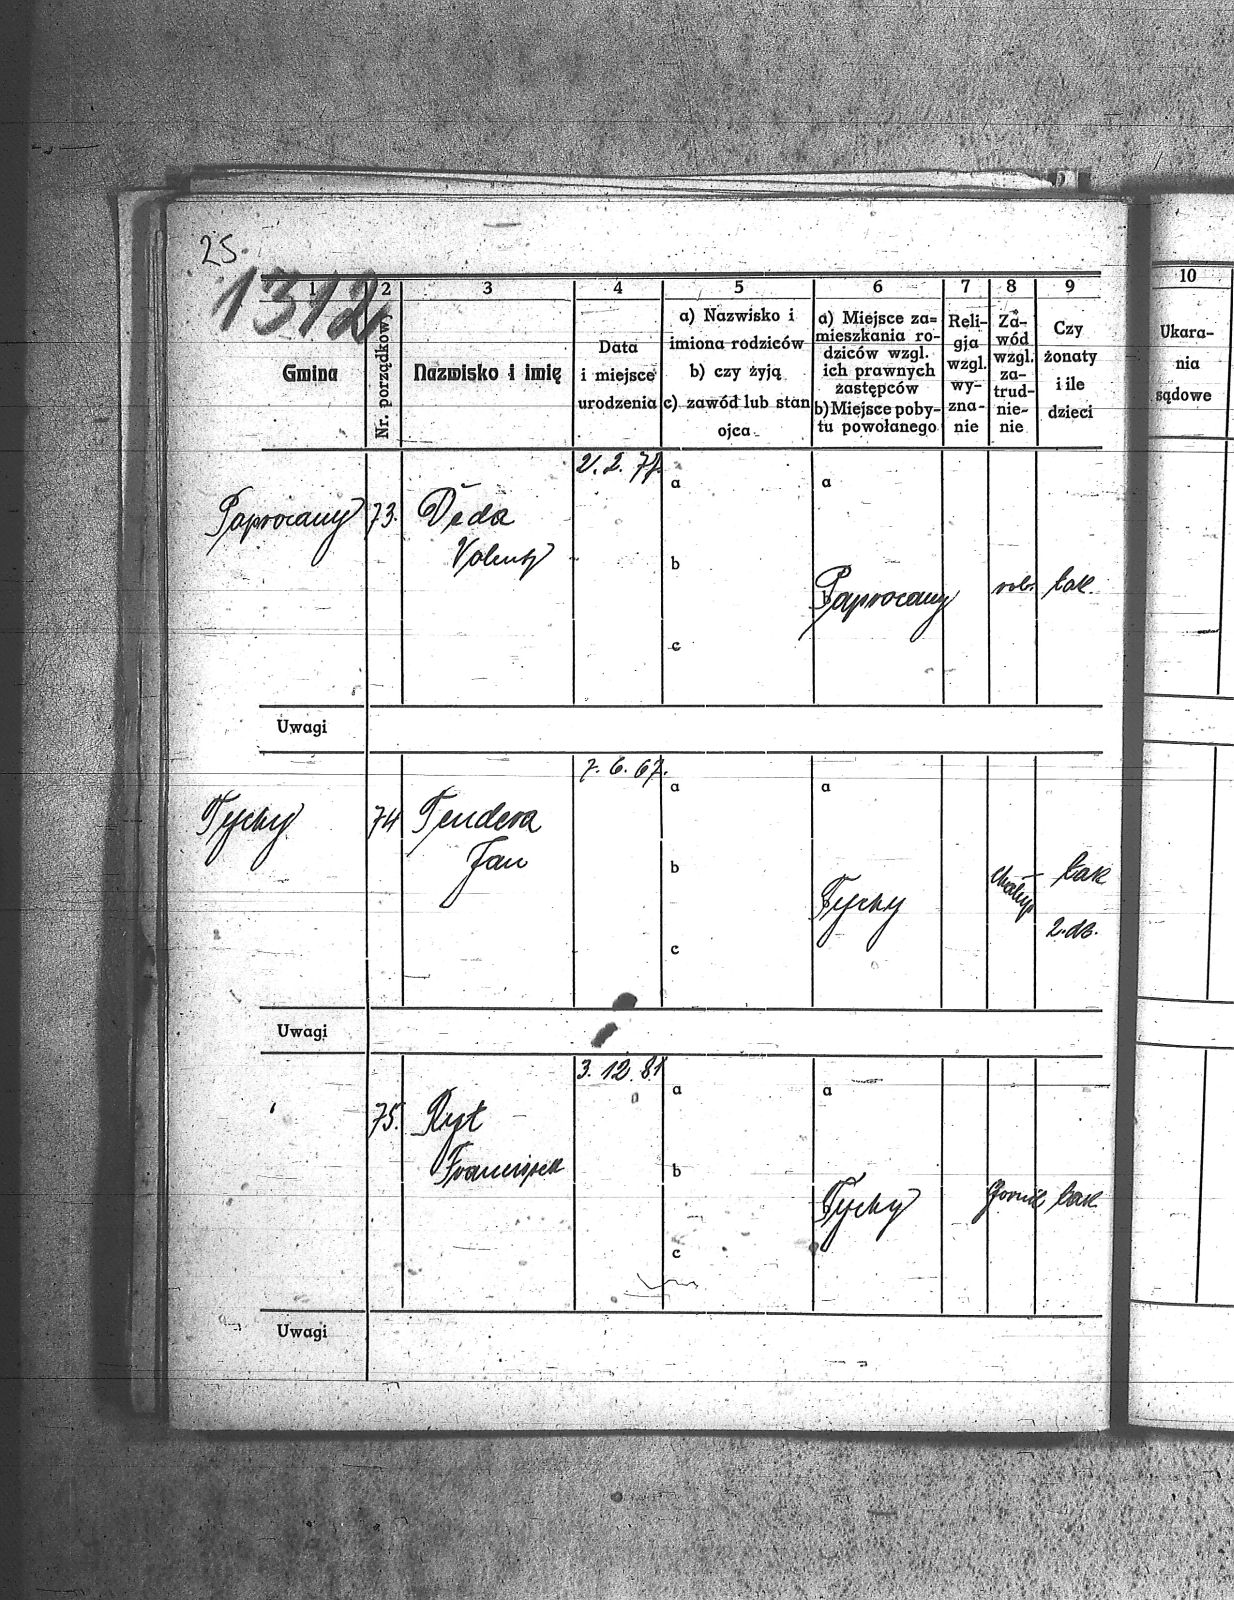 25.
1312
1
2
3
4
5
6
7
8
9
10
Gmina
Nr. porządkowy
Nazwisko i imię
Data
i miejsce
urodzenia
a) Nazwisko i
imiona rodziców
b) czy żyją
c) zawód lub stan
ojca
a) Miejsce za=
mieszkania ro-
dziców wzgl.
ich prawnych
zastępców
b) Miejsce poby-
tu powołanego
Reli-
gja
wzgl.
wy-
zna-
nie
Za-
wód
wzgl.
za-
trud-
nie-
nie
Czy
żonaty
i ile
dzieci
Ukara-
nia
sądowe
Paprocany
73.
Deda
21. 2.
a
b
c
a
Paprocany
rob.
tak.
Uwagi
Tychy
74
Tendera
Jan
7. 6. 67.
a
b
c
a
Tychy
tak
2. dz.
Uwagi
75.
Ryt
Franciszek
3. 12. 81
a
b
c
a
Tychy
górnik
tak
Uwagi